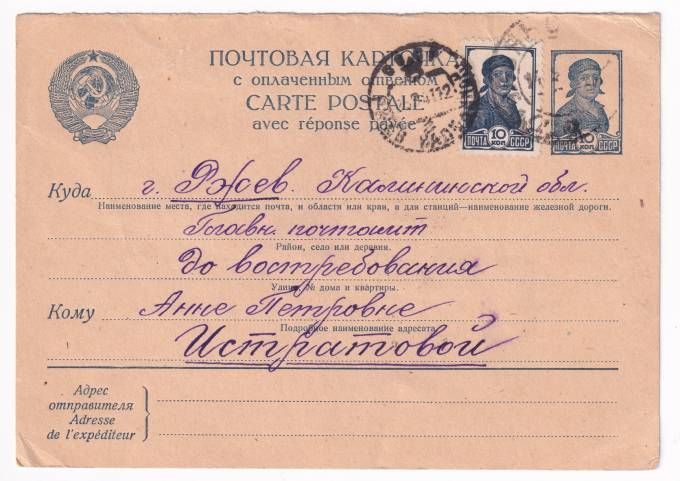 ПОЧТОВАЯ КАРТОЧКА
с оплаченным ответом
CARTE POSTALE
avec réponse payée
ПОЧТА 10 КОП. СССР
ПОЧТА 10 КОП. СССР
Куда г. Ржев. Калининской обл.
Наименование места, где находится почта, и области или края, а для станций—наименование железной дороги.
Главн. почтамт
Район, село или деревня.
До востребования
Улица, № дома и квартиры.
Кому Анне Петровне
Подробное наименование адресата.
Истратовой
Адрес
отправителя
Adresse
de l'expéditeur